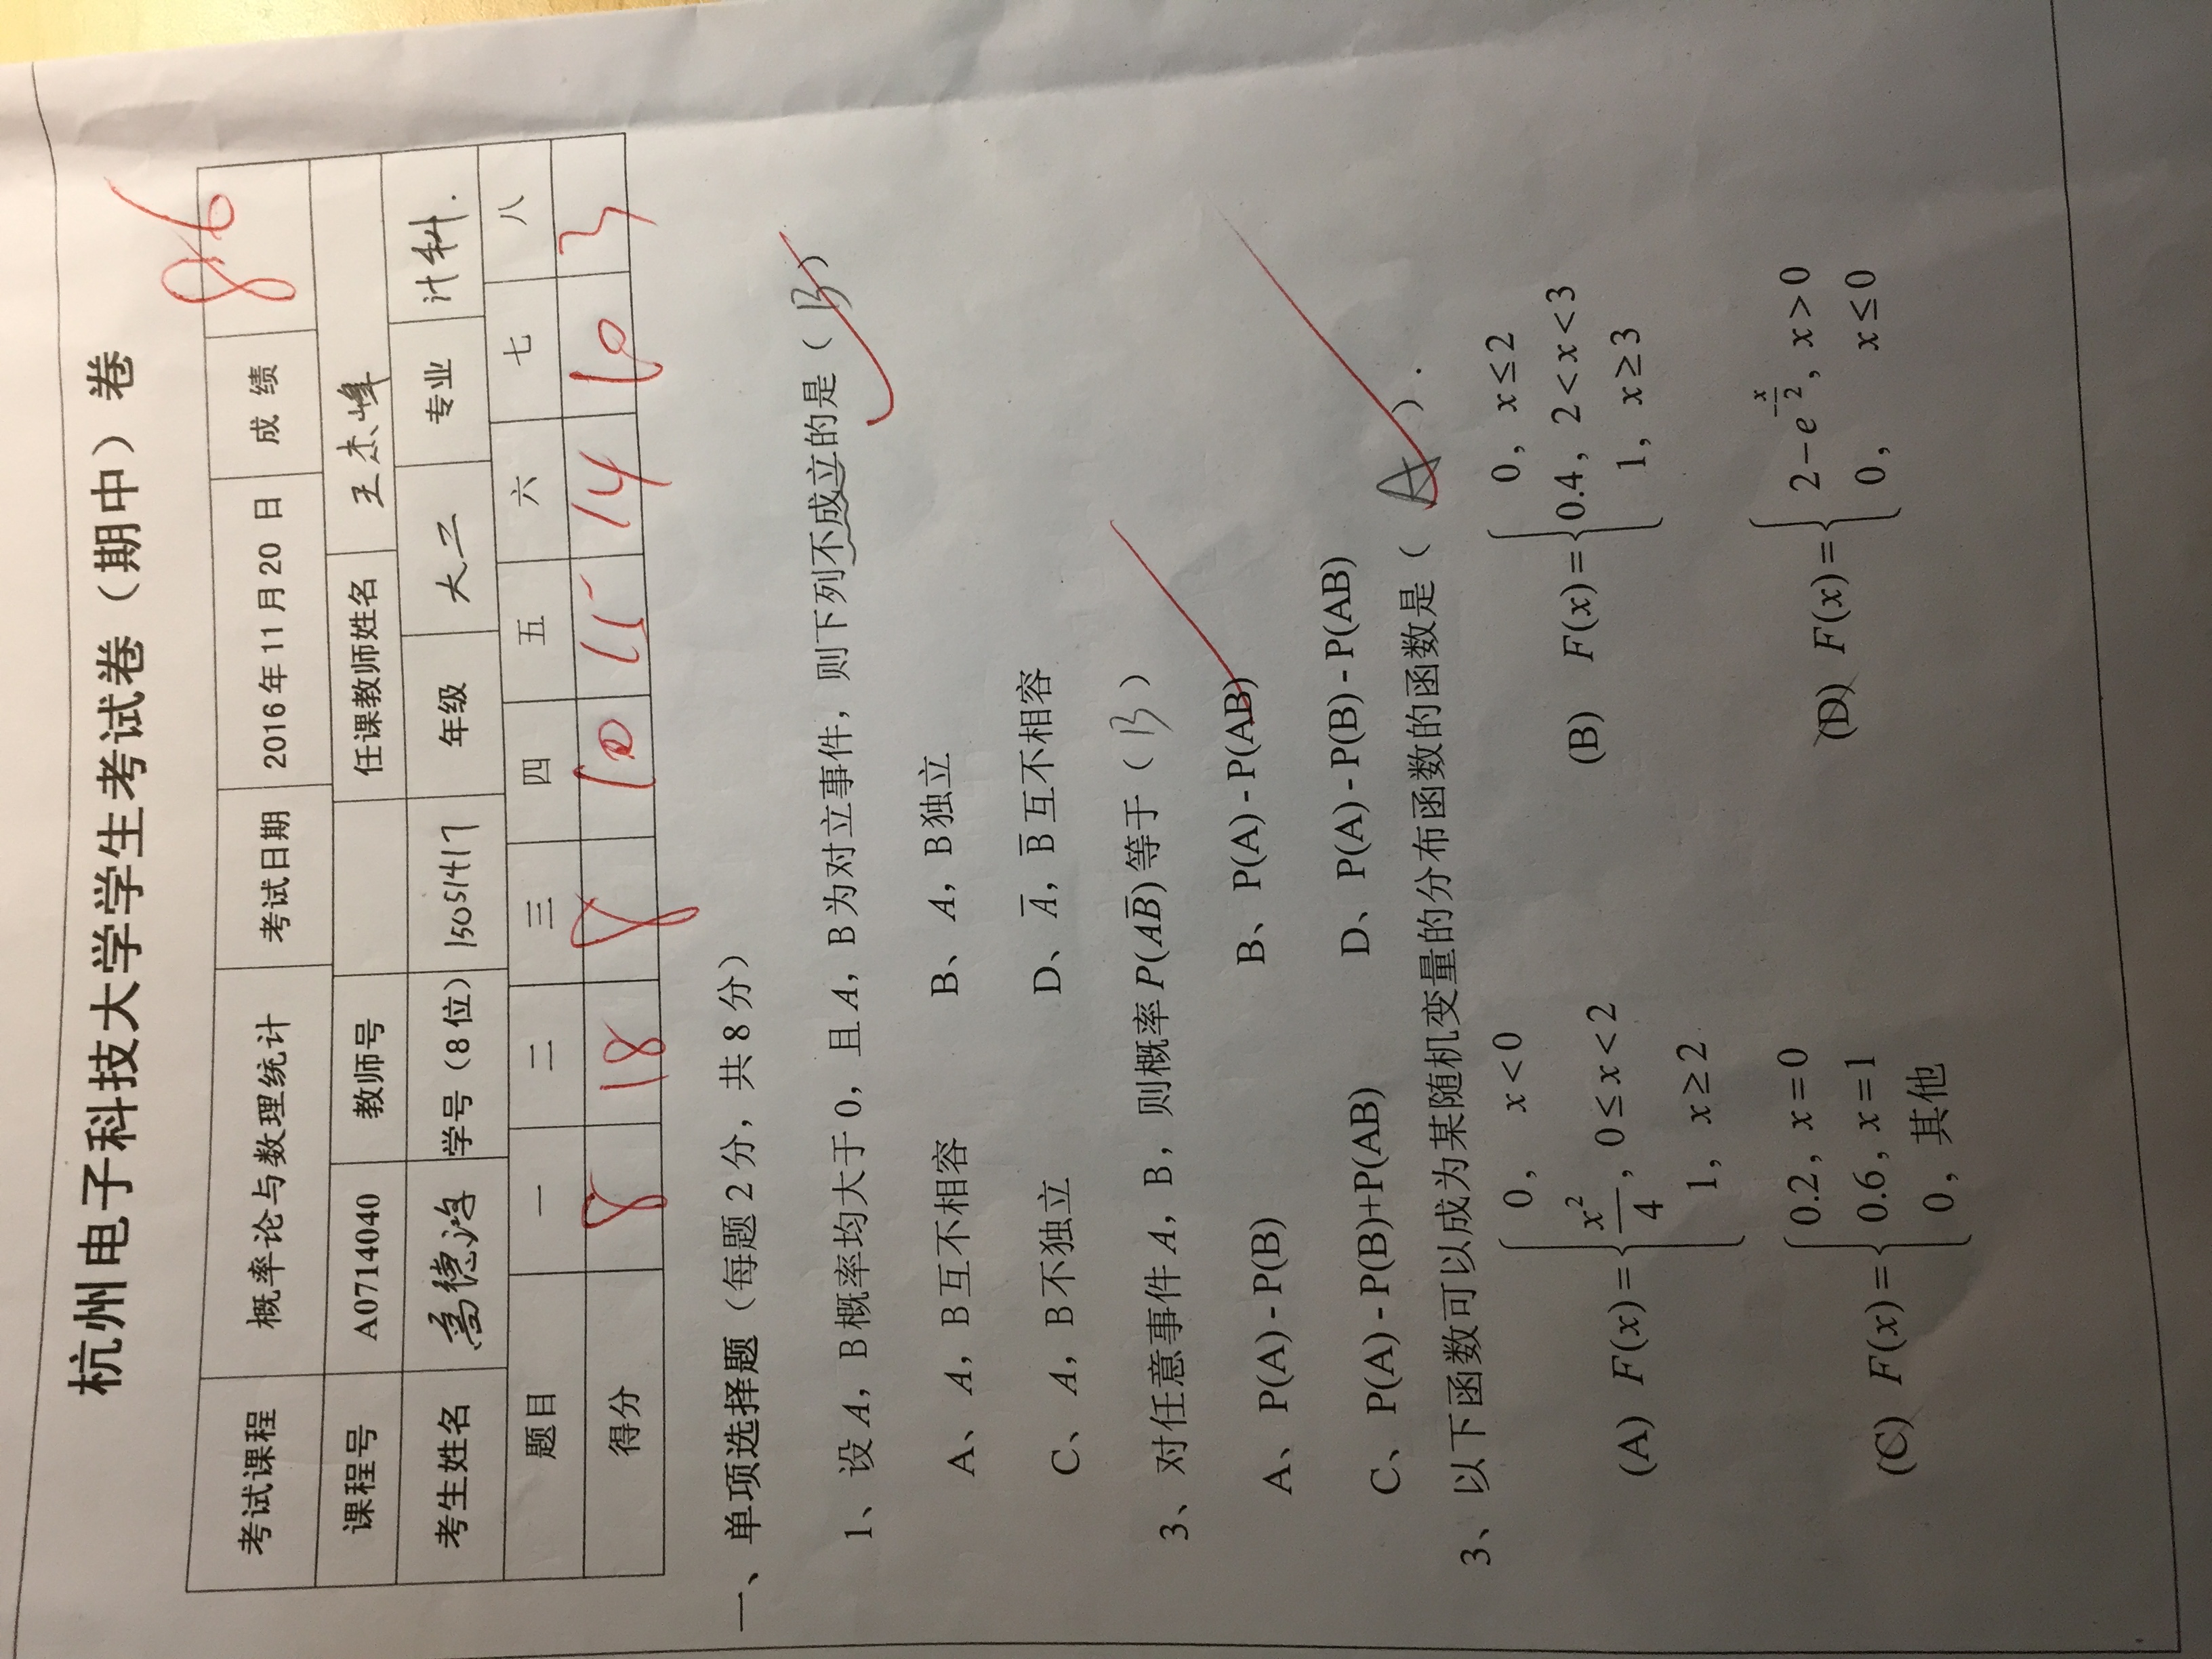 杭州电子科技大学学生考试卷（期中）卷
考试课程 概率论与数理统计 考试日期 2016年11月20日 成绩 86
课程号 A0714040 教师号 任课教师姓名 王杰峰
考生姓名 高德鸿 学号（8位） 15051417 年级 大二 专业 计科.
题目 一 二 三 四 五 六 七 八
得分 8 18 8 10 15 14 10 3
一、单项选择题（每题2分，共8分）
1、设A，B概率均大于0，且A，B为对立事件，则下列不成立的是（ B ）
A、A，B互不相容 B、A，B独立
C、A，B不独立 D、A̅，B̅互不相容
3、对任意事件A，B，则概率P(AB̅)等于（ B ）
A、P(A) - P(B) B、P(A) - P(AB)
C、P(A) - P(B)+P(AB) D、P(A) - P(B) - P(AB)
3、以下函数可以成为某随机变量的分布函数的函数是（ A ）.
(A) F(x) = { 0, x<0
x²/4, 0≤x<2
1, x≥2
(B) F(x) = { 0, x≤2
0.4, 2<x<3
1, x≥3
(C) F(x) = { 0.2, x=0
0.6, x=1
0, 其他
(D) F(x) = { 2−e^(−x/2), x>0
0, x≤0